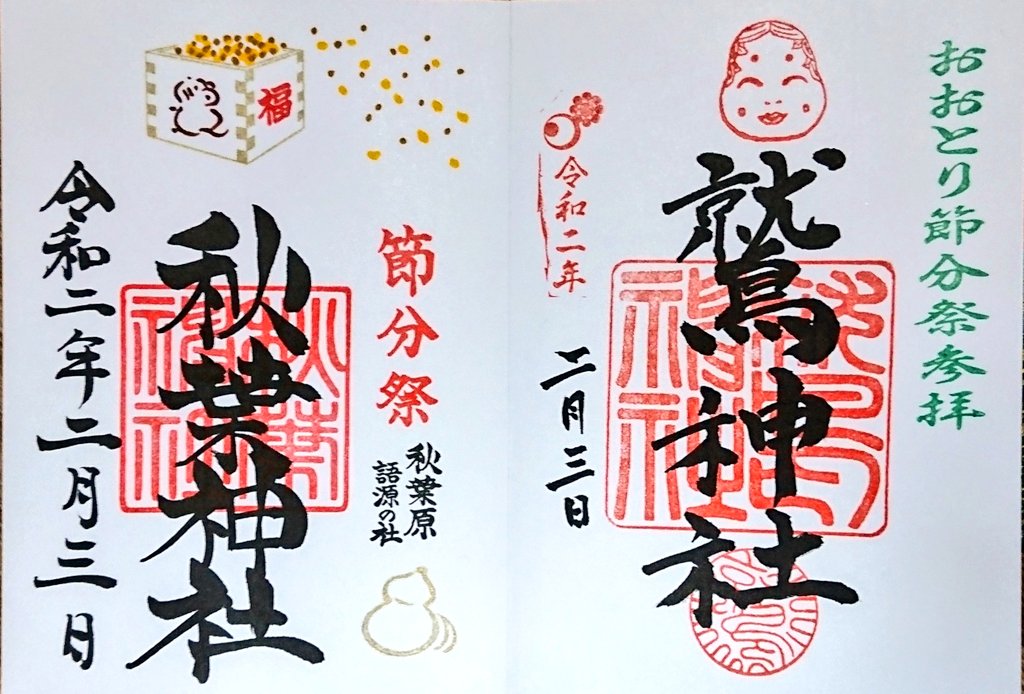 おおとり節分祭参拝
鷲神社
令和二年
二月三日
福
節分祭
秋葉原
語源の社
秋葉神社
令和二年二月三日